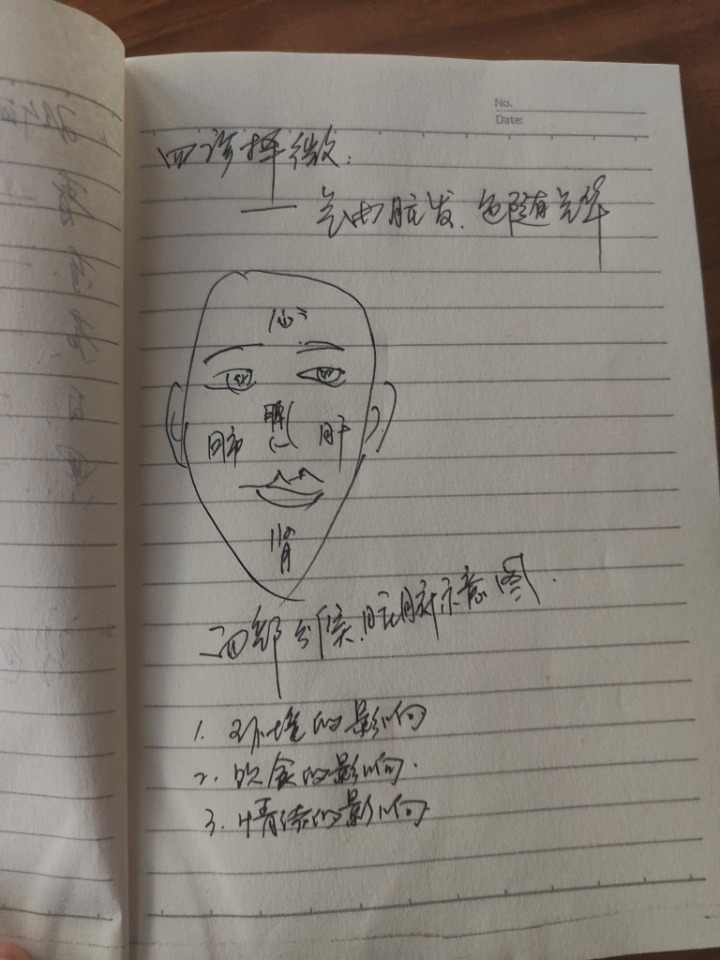 No.
Date:
四诊择微:
—— 气由脏发,色随气华
心
脾
肺 肝
肾
面部分候脏腑示意图.
1. 环境的影响
2. 饮食的影响.
3. 情绪的影响